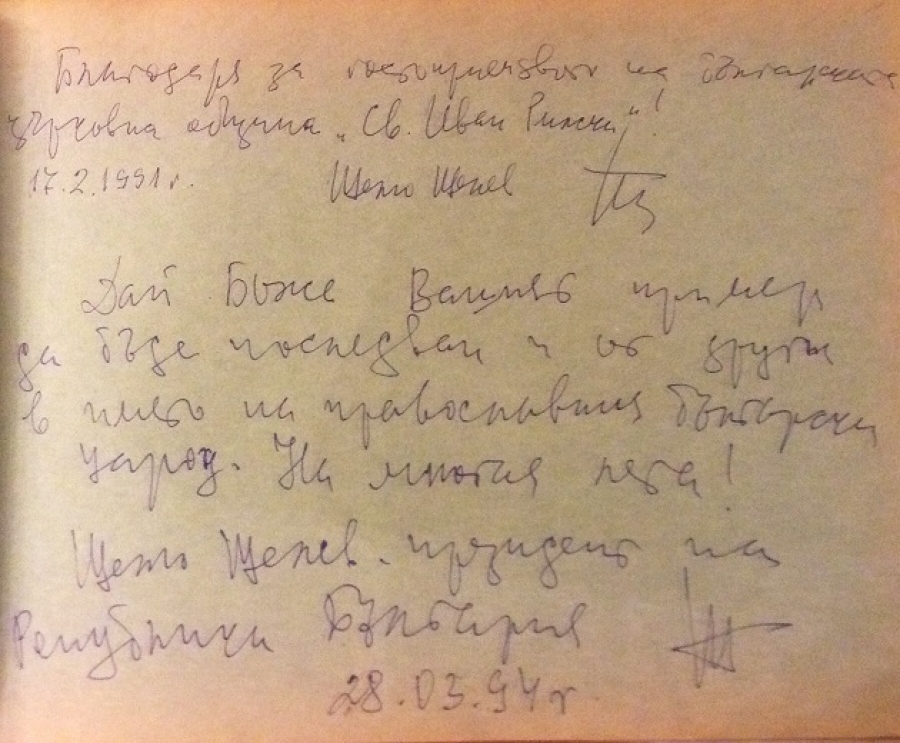 Благодаря за гостоприемството на българската
църковна община „Св. Иван Рилски“!
17.2.1991г. Щено Щенев
Дай Боже Вашият пример
да бъде последван и от други
в името на православния български
народ. На многая лета!
президент на
Република България
28.03.94г.